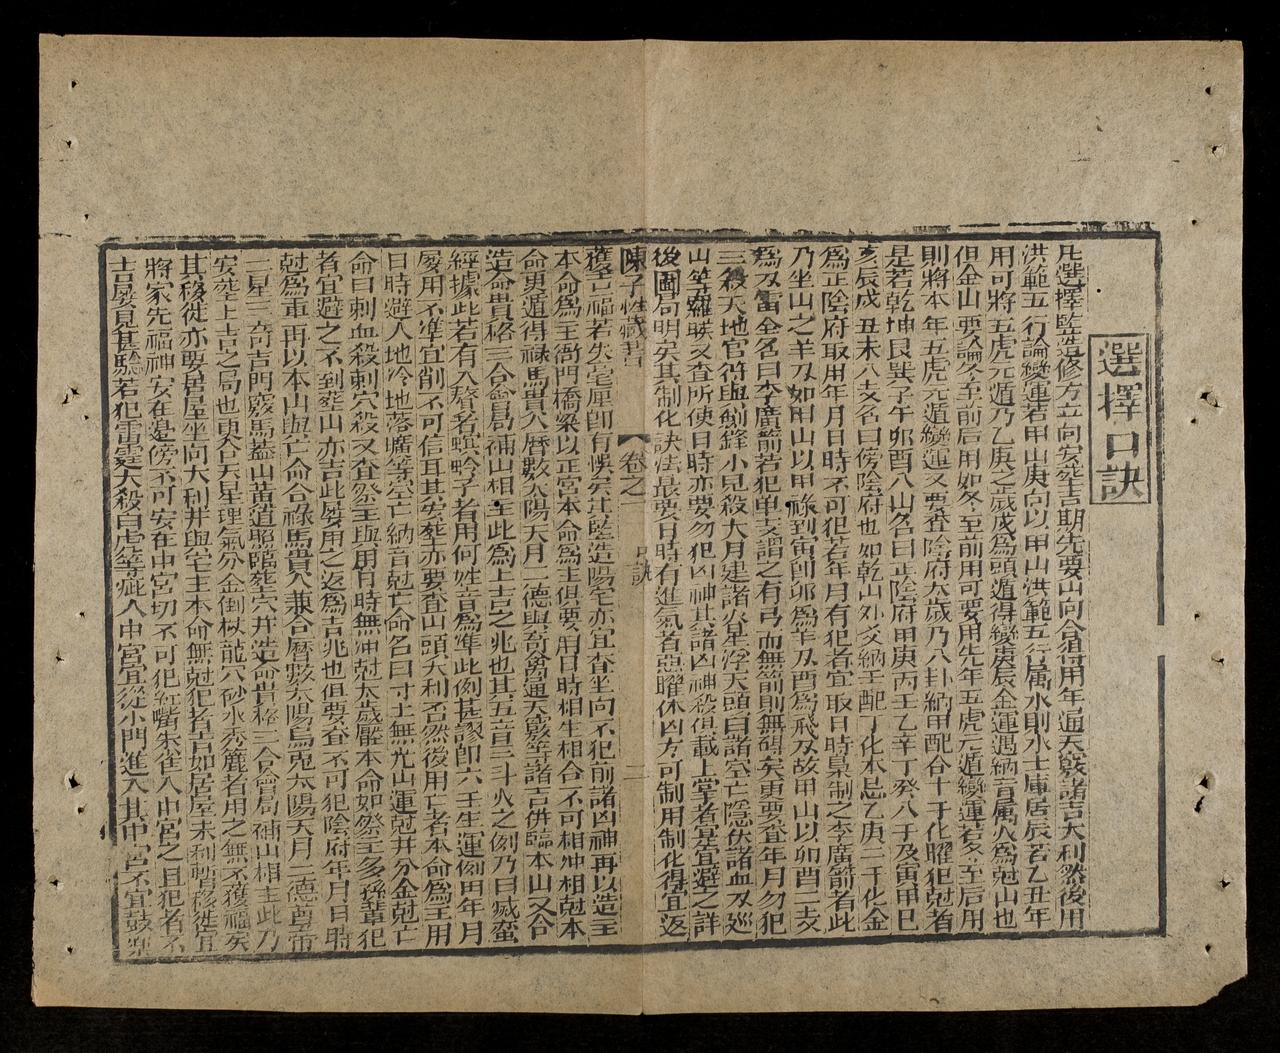 選擇口訣
凡選擇監造修方立向安塟吉期先要山向合得用年通天竅諸吉大利然後用
洪範五行論變運若甲山庚向以甲山洪範五行屬水則水土庫居辰若乙丑年
用可將五虎元遁乃乙庚之歲戊為頭遁得變庚辰金運遇納音屬火為尅山也
但金山要論冬至前后用如冬至前用可要用先年五虎元遁變運若冬至后用
則將本年五虎元遁變運又要查陰府太歲乃八卦納甲配合十干化曜犯尅者
是若乾坤艮巽子午卯酉八山名曰正陰府甲庚丙壬乙辛丁癸八干及寅申巳
亥辰戌丑未八支名曰傍陰府也如乾山外爻納壬配丁化木忌乙庚二干化金
為正陰府取用年月日時不可犯若年月有犯者宜取日時梟制之李廣箭者此
乃坐山之羊刄如甲山以甲祿到寅卽卯為羊刄酉為飛刄故甲山以卯酉二支
為刄當全名曰李廣箭若犯單支謂之有弓而無箭則無碍矣更要查年月勿犯
三殺天地官符與劍鋒小兒殺大月建諸火星浮天頭白諸空亡隱伏諸血刄巡
山等羅睺又查所使日時亦要勿犯凶神其諸凶神殺但載上掌者寔宜避之詳
後圖局明矣其制化訣法最要日時有進氣者惡曜休囚方可制用制化得宜返
陳子性藏書　卷之一　口訣　二
獲堅福若失宅厘卽有悞矣社監造陽宅亦宜查坐向不犯前諸凶神再以造主
本命為主衙門橋梁以正宮本命為主俱要用日時相生相合不可相冲相尅本
命更遁得祿馬貴人曆數太陽天月二德與奇禽通天竅等諸吉併臨本山又合
造命貴格三合會局補山相主此為上吉之兆也其五音三斗火之例乃曰滅蠻
經據此若有入聲者螟蛉子者用何姓音為準此例甚謬卽六壬生運例甲年月
屢用不準宜削不可信耳其安塟亦要查山頭大利否然後用亡者本命為主用
日時避人地冷地落曠等空亡納音尅亡命名曰寸土無光山運尅并分金尅亡
命曰刺血殺刺穴殺又查祭主與用日時無冲尅太歲壓本命如祭主多孫輩犯
者宜避之不到塟山亦吉此屢用之返為吉兆也但要查不可犯陰府年月日時
尅為重再以本山與亡命合祿馬貴人兼合曆數太陽烏兎太陽天月二德尊帝
二星三奇吉門竅馬蓋山黃道照臨塟穴并造命貴格三合會局補山相主此乃
安塟上吉之局也更合天星理氣分金倒杖龍穴砂水秀麗者用之無不獲福矣
其移徙亦要居屋坐向大利并與宅主本命無尅犯者吉如居屋未利暫移徙宜
將家先福神安在邊傍不可安在中宮切不可犯紅嘴朱雀入中宮之日犯者不
吉屢見甚驗若犯雷霆大殺白虎等疵入中宮宜從小門進入其中宮不宜鼓樂